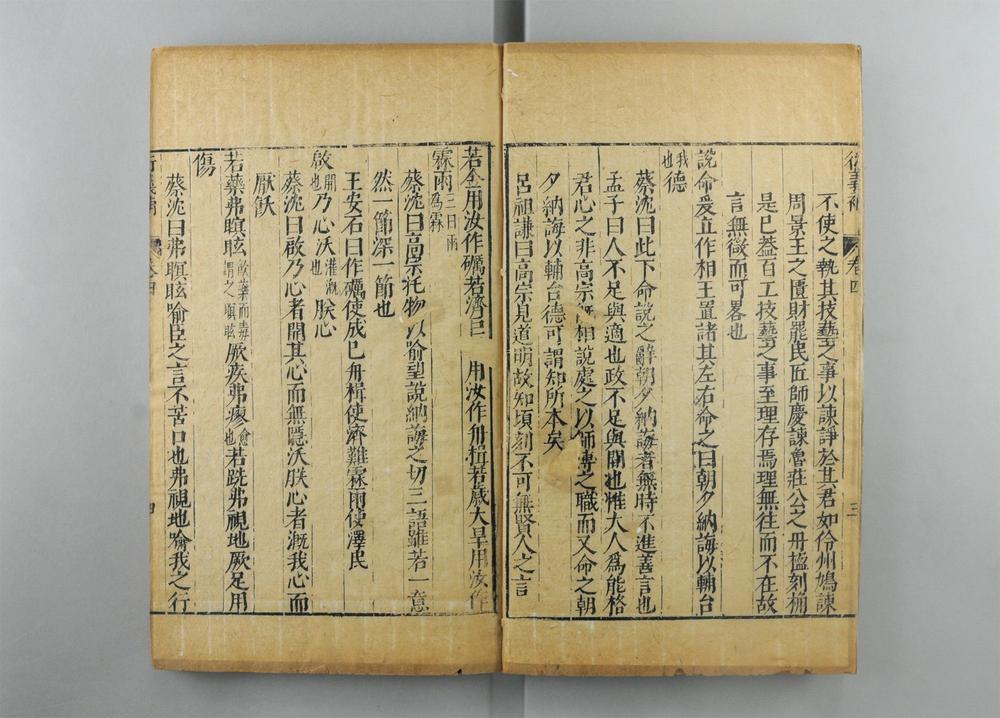 衍義補 卷四 三
不使之執其技藝之事以諫諍於其君如伶州鳩諫
周景王之匱財罷民匠師慶諫魯莊公之丹楹刻桷
是已葢百工技藝之事至理存焉理無往而不在故
言無微而可畧也
說命爰立作相王置諸其左右命之曰朝夕納誨以輔台
我也德
蔡沈曰此下命說之辭朝夕納誨者無時不進善言也
孟子曰人不足與適也政不足與閒也惟大人為能格
君心之非高宗旣相說處之以師傅之職而又命之朝
夕納誨以輔台德可謂知所本矣
呂祖謙曰高宗見道明故知頃刻不可無賢人之言
若金用汝作礪若濟巨 用汝作舟楫若歲大旱用汝作
霖雨三日雨為霖
蔡沈曰高宗托物以喻望說納誨之切三語雖若一意
然一節深一節也
王安石曰作礪使成已舟楫使濟難霖雨使澤民
啟開也乃心沃灌溉也朕心
蔡沈曰啟乃心者開其心而無隱沃朕心者溉我心而
厭飫
若藥弗瞑眩飲藥而毒謂之瞑眩厥疾弗瘳愈也若跣弗視地厥足用
傷
蔡沈曰弗瞑眩喻臣之言不苦口也弗視地喻我之行
衍義補 卷四 四